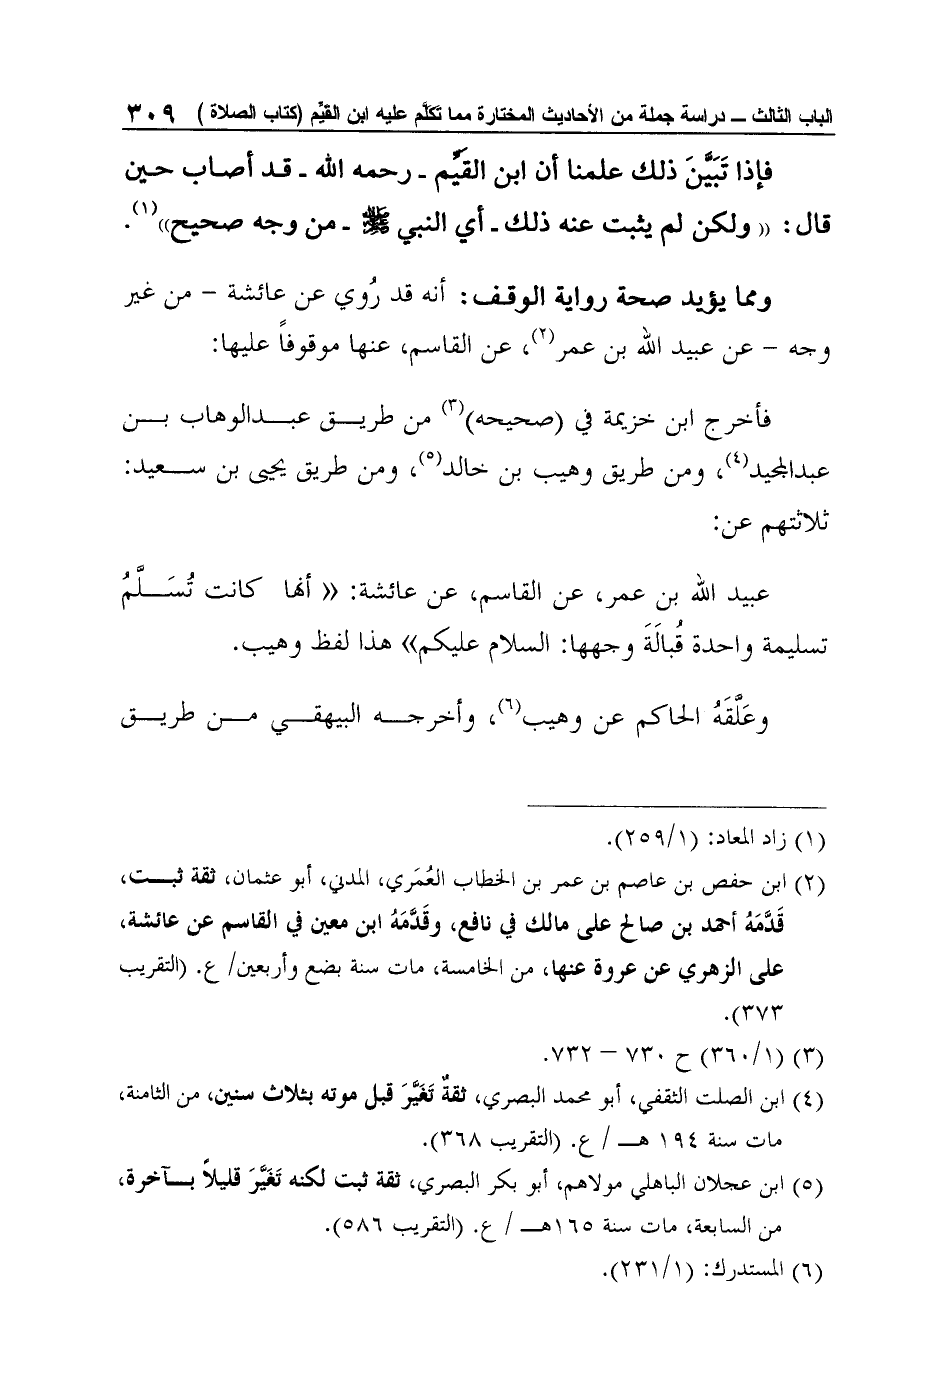 الباب الثالث ــ دراسة جملة من الأحاديث المختارة مما تكلَّم عليه ابن القيِّم (كتاب الصلاة ) ٣٠٩
فإذا تَبَيَّنَ ذلك علمنا أن ابن القيِّم ـ رحمه الله ـ قد أصاب حين
قال: (( ولكن لم يثبت عنه ذلك ـ أي النبي ﷺ ـ من وجه صحيح))(١).
ومما يؤيد صحة رواية الوقف: أنه قد رُوي عن عائشة – من غير
وجه – عن عبيد الله بن عمر(٢)، عن القاسم، عنها موقوفاً عليها:
فأخرج ابن خزيمة في (صحيحه)(٣) من طريق عبدالوهاب بن
عبدالمجيد(٤)، ومن طريق وهيب بن خالد(٥)، ومن طريق يحيى بن سعيد:
ثلاثتهم عن:
عبيد الله بن عمر، عن القاسم، عن عائشة: (( أنها كانت تُسَلَّمُ
تسليمة واحدة قُبالَةَ وجهها: السلام عليكم)) هذا لفظ وهيب.
وعَلَّقَهُ الحاكم عن وهيب(٦)، وأخرجه البيهقي من طريق
(١) زاد المعاد: (٢٥٩/١).
(٢) ابن حفص بن عاصم بن عمر بن الخطاب العُمَري، المدني، أبو عثمان، ثقة ثبت،
قَدَّمَهُ أحمد بن صالح على مالك في نافع، وقَدَّمَهُ ابن معين في القاسم عن عائشة،
على الزهري عن عروة عنها، من الخامسة، مات سنة بضع وأربعين/ ع. (التقريب
٣٧٣).
(٣) (٣٦٠/١) ح ٧٣٠ – ٧٣٢.
(٤) ابن الصلت الثقفي، أبو محمد البصري، ثقةٌ تَغَيَّرَ قبل موته بثلاث سنين، من الثامنة،
مات سنة ١٩٤ هـ / ع. (التقريب ٣٦٨).
(٥) ابن عجلان الباهلي مولاهم، أبو بكر البصري، ثقة ثبت لكنه تَغَيَّرَ قليلاً بآخرة،
من السابعة، مات سنة ١٦٥هـ / ع. (التقريب ٥٨٦).
(٦) المستدرك: (٢٣١/١).